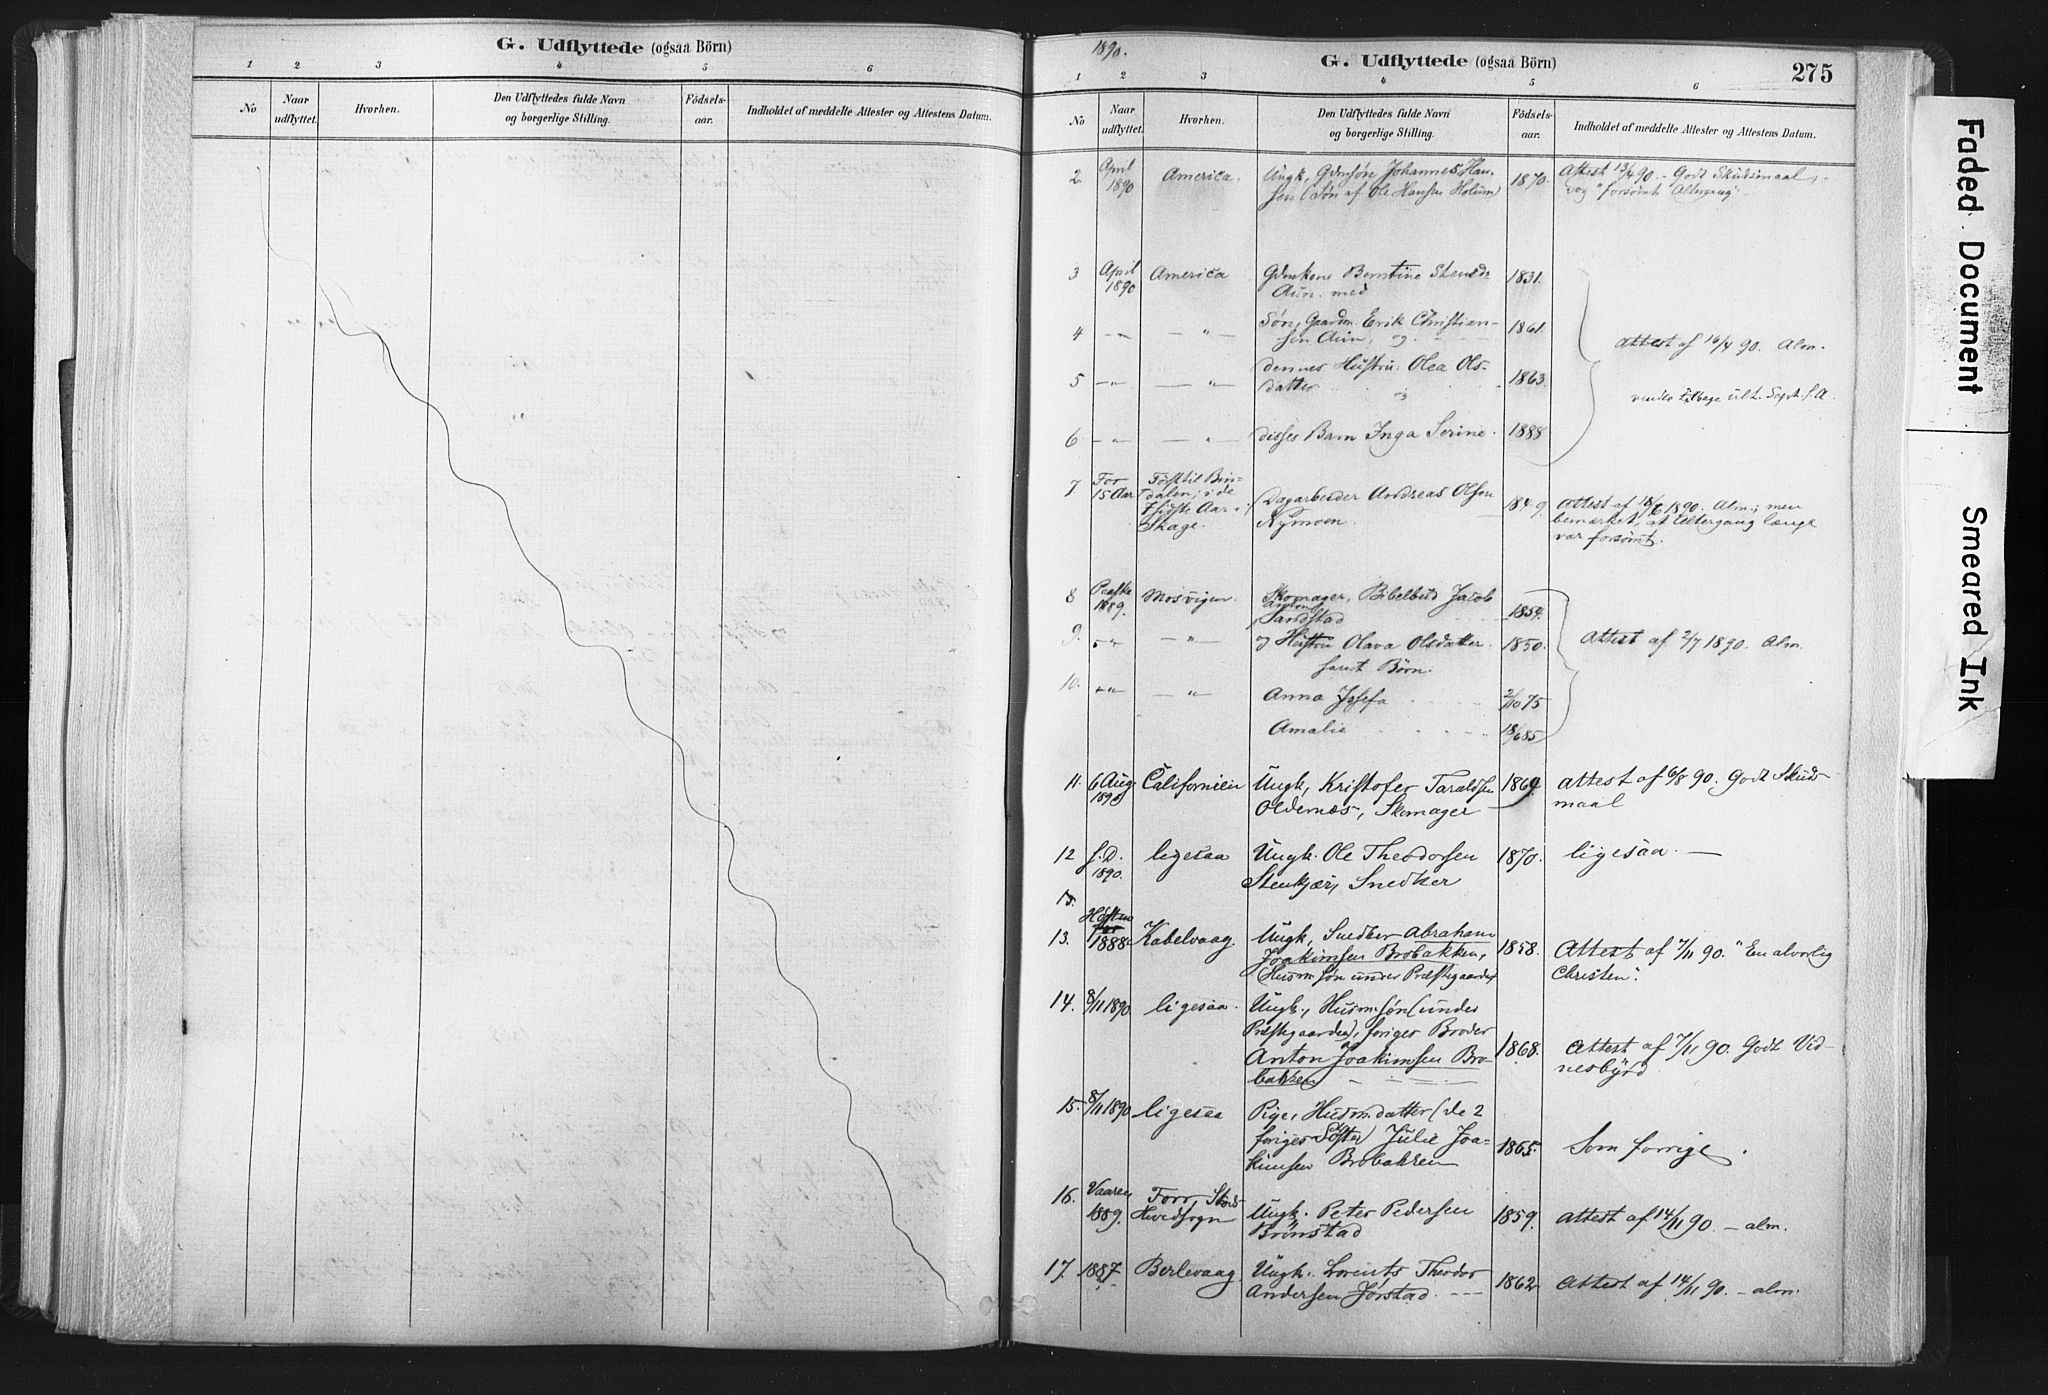 G. Udflyttede (ogsaa Börn)
1 2 3 4 5 6
No
Naar udflyttet.
Hvorhen.
Den Udflyttedes fulde Navn og borgerlige Stilling.
Födsels-aar.
Indholdet af meddelte Attester og Attestens Datum.
1890.
G. Udflyttede (ogsaa Börn)
275
1 2 3 4 5 6
No
Naar udflyttet.
Hvorhen.
Den Udflyttedes fulde Navn og borgerlige Stilling.
Födsels-aar.
Indholdet af meddelte Attester og Attestens Datum.
2 April 1890 America. Ungk, Gdmsøn Johannes Han-
sen (Søn af Ole Hansen Holum) 1870. Attest 13/4 90. - Godt Skudsmaal,
dog "forsømt Altergang"
3 April 1890 America Gdmkone Berntine Stensd:
Aun. med 1831.
4 -"- -"- Søn, Gaardm. Erik Christian-
sen Aun, og 1861.
Attest af 16/4 90. Alm.
5 -"- -"- dennes Hustru Olea Ols-
datter 1863.
vendte tilbage ult. Sept. s. A.
6 -"- -"- disses Barn Inga Serine. 1888
7 For 15 Aar Først til Bin-
dalen; i de
7 sidste Aar i
Skage.
Dagarbeider Andreas Olsen
Nymoen. 1849.
Attest af 18/6 1890. Alm.; men
bemærket, at Altergang længe
var forsømt.
8 Paaske 1889. Mosvigen. Skomager, Bibelbud Jacob
Sandstad 1854.
9. -"- -"- og Hustru Olava Olsdatter 1850.
Attest af 2/7 1890. Alm.
samt Børn.
10. -"- -"- Anna Josefa 2/10 75
Amalie 18/6 85
11. 6 Aug 1890 Californien Ungk, Kristofer Taraldsen
Oldernæs, Skomager 1869 Attest af 6/8 90. Godt Skuds-
maal
12 s. D. 1890. ligesaa Ungk. Ole Theodorsen
Stenkjær, Snedker 1870. ligesaa. —
13.
13. Høsten 1888. Kabelvaag. Ungk, Snedker Abraham
Joakimsen Brobakken,
(Husm.søn under Præstegaarden) 1858. Attest af 7/11 90. "En alvorlig
Christen".
14. 8/11 1890. ligesaa. Ungk., Husm.søn (under
Præstegaarden), foriges Broder
Anton Joakimsen Bro-
bakken 1868. Attest af 7/11 90. Godt Vid-
nesbyrd
15. 8/11 1890 ligesaa Pige, Husm.datter (de 2
foriges Søster) Julie Joa-
kimsen Brobakken 1865. Som forrige.
16. Vaaren 1889. Foro, Stods
Hvedsogn Ungk. Peter Pedersen
Brønstad 1859. Attest af 14/11 90. - alm.
17. 1887. Berlevaag Ungk. Lorents Theodor
Andersen Jørstad. 1862 Attest af 14/11 90. - alm.
Faded Document
Smeared Ink